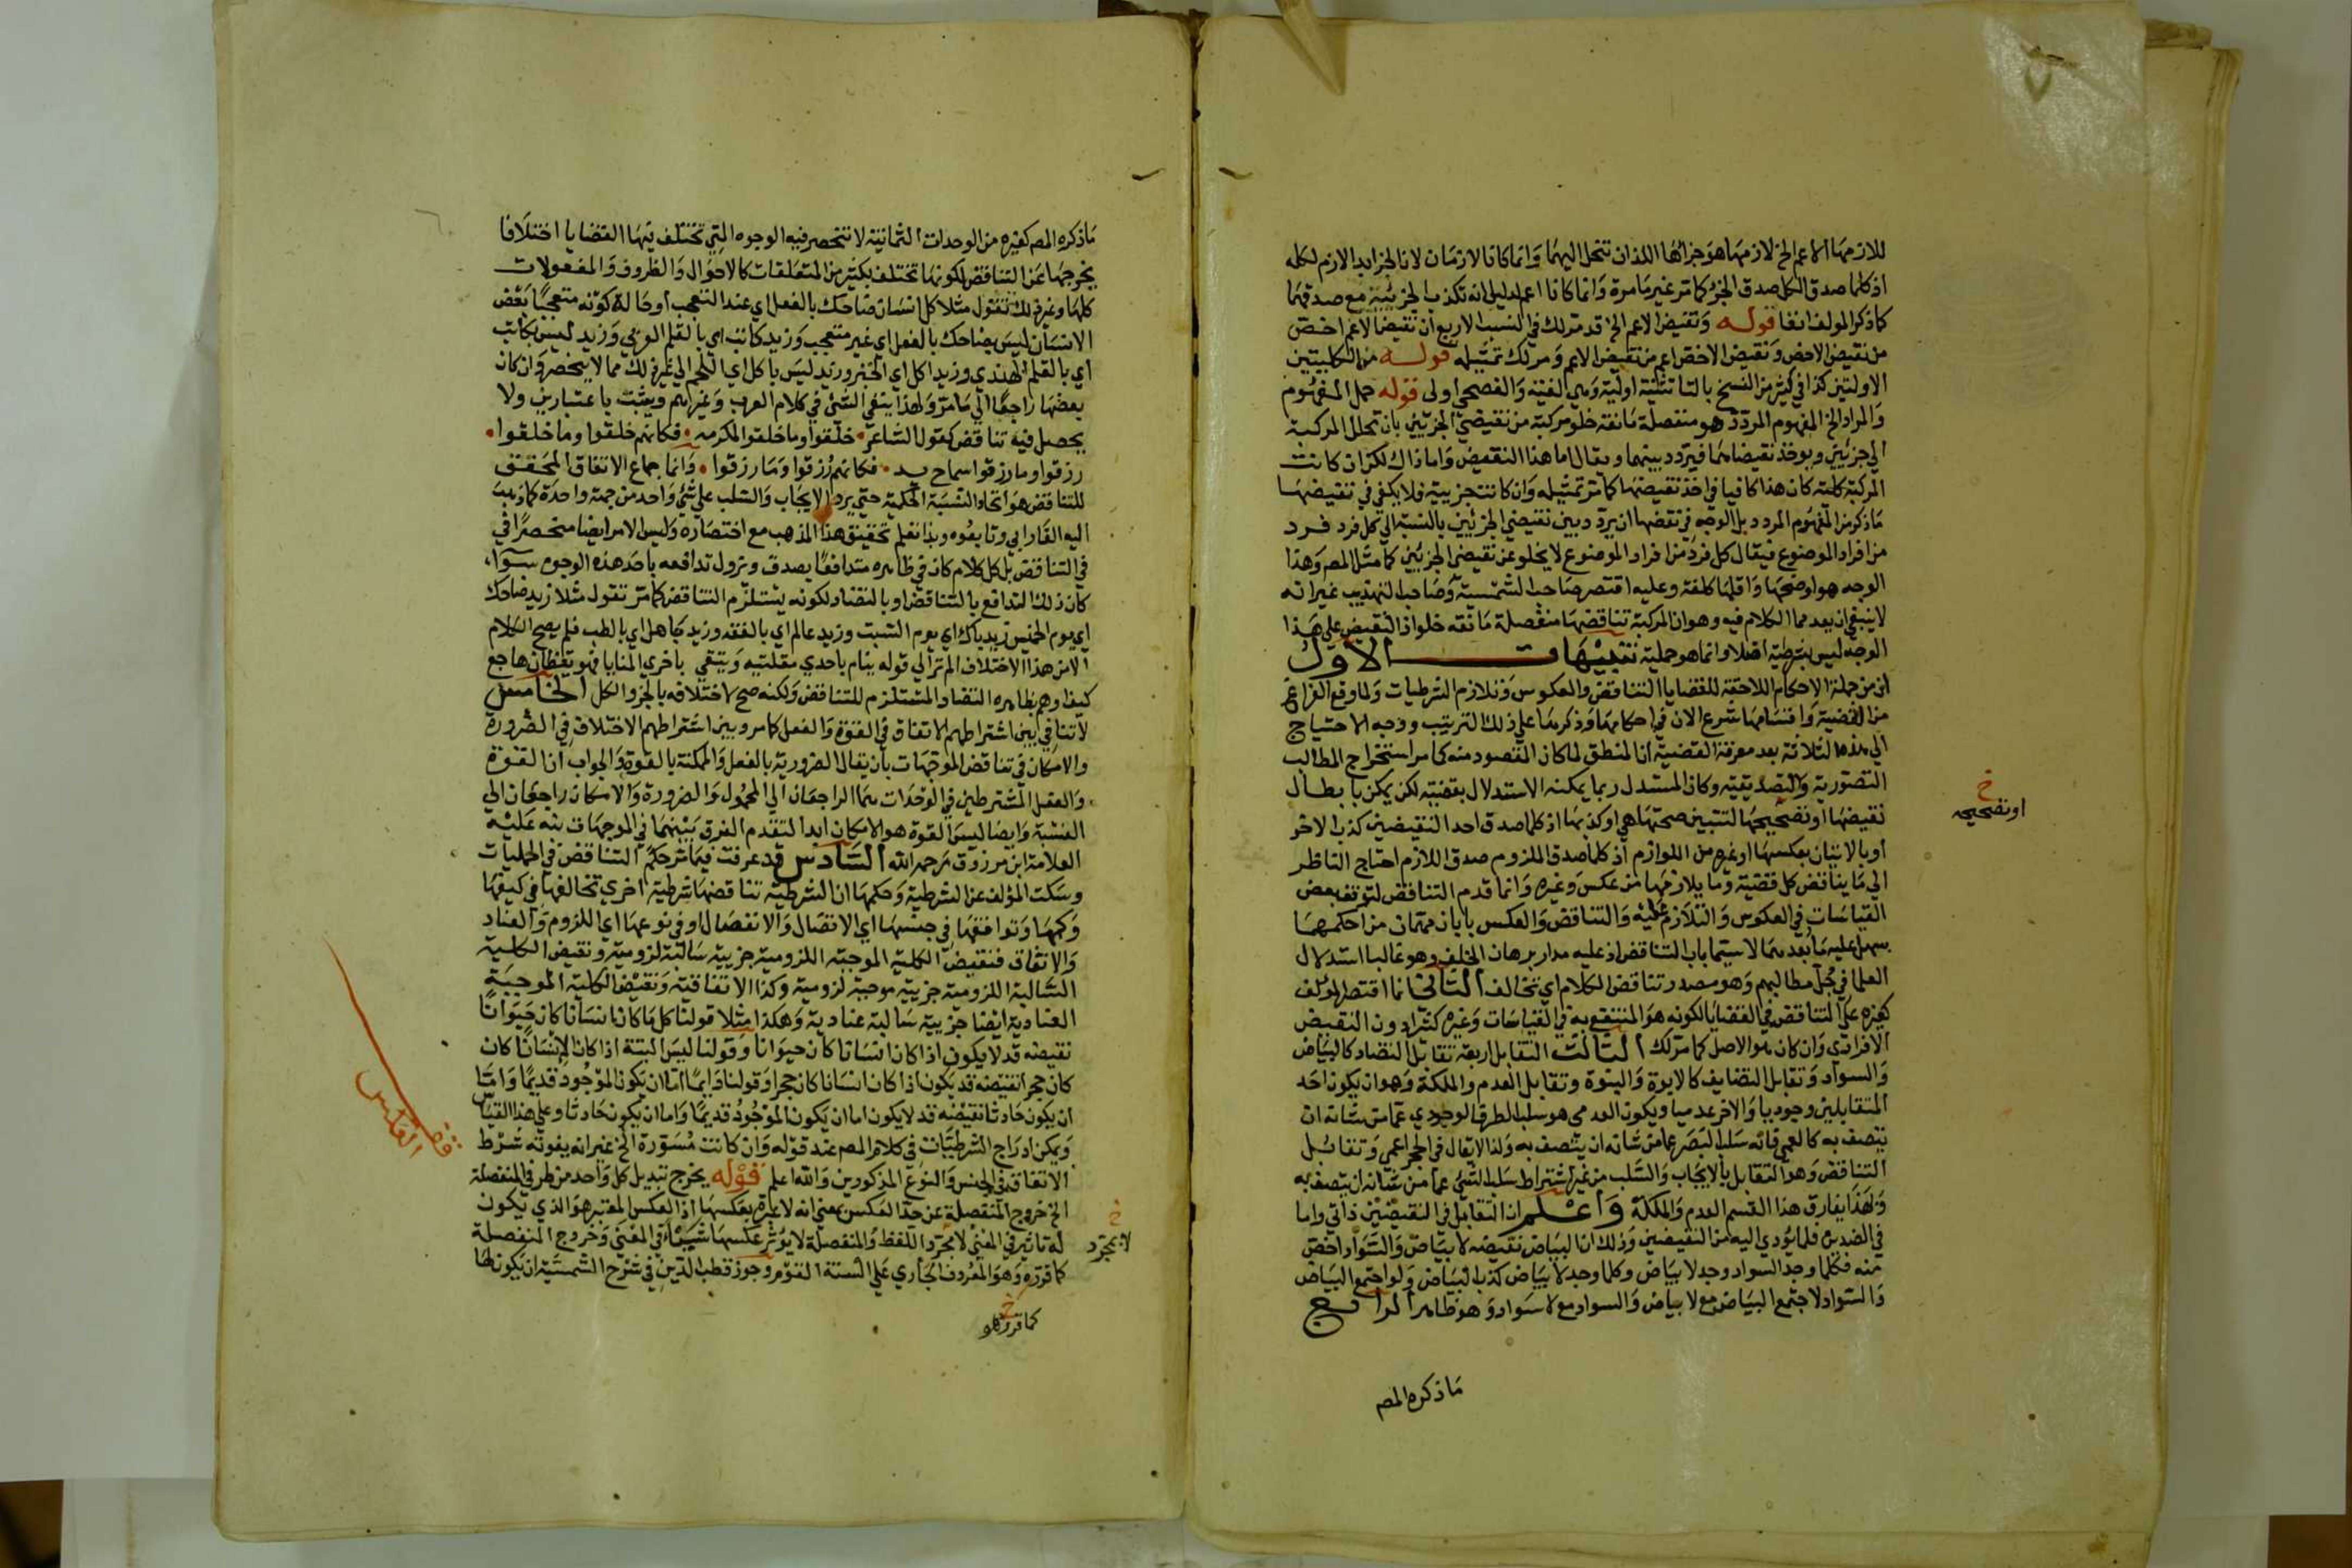 للازمها الاعم الخ لازمها هو جزاها اللذان تنحل اليهما وانما كانا لازمان لان الجزا ابدا لازم لكله
اذ كلما صدق الكل صدق الجزء كما مر غير ما مرة وانما كانا اعم لدليل انه تكذب الجزئية مع صدقهما
كما ذكر المولف انفا قوله ونقيض الاعم الخ قد مر لك في النسب الاربع ان نقيض الاعم اخص
من نقيض الاخص ونقيض الاخص اعم من نقيض الاعم ومر لك تمثيله قوله من الكليتين
الاولتين كذا في كثير من النسخ بالتا تثنية اولة وهي لغية والفصحى اولى قوله حمل المفهوم
والمراد الخ المفهوم المردد هو منفصلة مانعة خلو مركبة من نقيضي الجزئين بان تحلل المركبة
الى جزئين ويوخذ نقيضاهما فيردد بينهما ويقال اما هذا النقيض واما ذاك لكن ان كانت
المركبة كلية كان هذا كافيا في اخذ نقيضها كما مر تمثيله وان كانت جزيية فلا يكفي في نقيضها
ما ذكر من المفهوم المردد بل الوجه في نقضها ان يردد بين نقيضي الجزئين بالنسبة الى كل فرد فرد
من افراد الموضوع فيقال كل فرد من افراد الموضوع لا يخلو عن نقيض الجزئين كما مثل المص وهذا
الوجه هو اوضحها واقلها كلفة وعليه اقتصر صاحب الشمسية وصاحب التهذيب غير انه
لا ينبغي ان يعد مما الكلام فيه وهو ان المركبة تناقضها منفصلة مانعة خلو اذ النقيض على هذا
الوجه ليس بشرطية اصلا وانما هو حملية تنبيهات الاول
ان من جملة الاحكام اللاحقة للقضايا التناقض والعكوس وتلازم الشرطيات ولما وقع الفراغ
من القضية واقسامها شرع الان في احكامها وذكرها على ذلك الترتيب ووجه الاحتياج
الى هذه الثلاثة بعد معرفة القضية ان المنطق لما كان المقصود منه كما مر استخراج المطالب
التصورية والتصديقية وكان المستدل ربما يمكنه الاستدلال بقضية لكن يمكن بابطال
نقيضها او تصحيحها لتتبين صحتها هي او كذبها اذ كلما صدق احد النقيضين كذب الاخر
او بالاتيان بعكسها او غيره من اللوازم اذ كلما صدق الملزوم صدق اللازم احتاج الناظر
الى ما يناقض كل قضية وما يلازمها من عكس وغيره وانما قدم التناقض لتوقف بعض
القياسات في العكوس والتلازم عليه والتناقض والعكس بابان مهمان من احكمهما
سهل عليه ما بعدهما لا سيما باب التناقض اذ عليه مدار برهان الخلف وهو غالبا استدلال
العلما في جل مطالبهم وهو مصدر تناقض الكلام اي تخالف الثاني انما اقتصر المولف
كغيره على التناقض في القضايا لكونه هو المنتفع به في القياسات وغيره كثيرا دون النقيض
الافرادي وان كان هو الاصل كما مر لك الثالث التقابل اربعة تقابل التضاد كالبياض
والسواد وتقابل التضايف كالابوة والبنوة وتقابل العدم والملكة وهو ان يكون احد
المتقابلين وجوديا والاخر عدميا ويكون العدمي هو سلب الطرف الوجودي عما من شانه ان
يتصف به كالعمى فانه سلب البصر عما من شانه ان يتصف به ولذا لا يقال في الحجر اعمى وتقابل
التناقض وهو التقابل بالايجاب والسلب من غير اشتراط سلب الشئ عما من شانه ان يتصف به
ولهذا يفارق هذا القسم العدم والملكة واعلم ان التقابل في النقيضين ذاتي واما
في الضدين فلما يؤدي اليه من النقيضين وذلك ان البياض نقيضه لا بياض والسواد اخص
منه فكلما وجد السواد وجد لا بياض وكلما وجد لا بياض كذب البياض ولو اجتمع البياض
والسواد لاجتمع البياض مع لا بياض والسواد مع لا سواد وهو ظاهر الرابع
ما ذكره المص
خ
او تصحيحه
ما ذكره المص كغيره من الوحدات الثمانية لا تنحصر فيه الوجوه التي تختلف بها القضايا اختلافا
يخرجها عن التناقض لكونها تختلف بكثير من المتعلقات كالاحوال والظروف والمفعولات
كلها وغير ذلك تقول مثلا كل انسان ضاحك بالفعل اي عند التعجب او حالة كونه متعجبا بعض
الانسان ليس بضاحك بالفعل اي غير متعجب وزيد كاتب اي بالقلم العربي وزيد ليس بكاتب
اي بالقلم الهندي وزيد اكل اي الخبز وزيد ليس باكل اي اللحم الى غير ذلك مما لا ينحصر وان كان
بعضها راجعا الى ما مر ولهذا ينفى الشئ في كلام العرب وغيرهم ويثبت باعتبارين ولا
يحصل فيه تناقض كقول الشاعر خلقوا وما خلقوا لمكرمة فكانهم خلقوا وما خلقوا
رزقوا وما رزقوا سماح يد فكانهم رزقوا وما رزقوا وانما جماع الاتفاق المحقق
للتناقض هو اتحاد النسبة الحكمية حتى يرد الايجاب والسلب على شئ واحد من جهة واحدة كما ذهب
اليه الفارابي وتابعوه وبذا تعلم تحقيق هذا المذهب مع اختصاره وليس الامر ايضا منحصرا في
في التناقض بل كل كلام كان في ظاهره متدافعا يصدق وتزول تدافعه باحد هذه الوجوه سوا
كان ذلك التدافع بالتناقض او بالتضاد لكونه يستلزم التناقض كما مر تقول مثلا زيد ضاحك
اي يوم الخميس زيد باك اي يوم السبت وزيد عالم اي بالفقه وزيد جاهل اي بالطب فلم يصح الكلام
الا من هذا الاختلاف الم تر الى قوله ينام باحدى مقلتيه ويتقي باخرى المنايا فهو يقظان هاجع
كيف اوهم بظاهره التضاد المستلزم للتناقض ولكنه صح لاختلافه بالجزو الكل الخامس
لا تنافي بين اشتراطهم الاتفاق في القوة والفعل كما مر وبين اشتراطهم الاختلاف في الضرورة
والامكان في تناقض الموجهات بان يقال الضرورية بالفعل والممكنة بالقوة والجواب ان القوة
والفعل المشترطين في الوحدات هما الراجعان الى المحمول والضرورة والامكان راجعان الى
النسبة وايضا ليس القوة هو الامكان ابدا لتقدم الفرق بينهما في الموجهات نبه عليه
العلامة ابن مرزوق رحمه الله السادس قد عرفت فيما مر حكم التناقض في الحمليات
وسكت المؤلف عن الشرطية وحكمها ان الشرطية تناقضها شرطية اخرى تخالفها في كيفها
وكمها وتوافقها في جنسها اي الاتصال والانفصال او في نوعها اي اللزوم والعناد
والاتفاق فنقيض الكلية الموجبة اللزومية جزيية سالبة لزومية ونقيض الكلية
السالبة اللزومية جزيية موجبة لزومية وكذا الاتفاقية ونقيض الكلية الموجبة
العنادية ايضا جزيية سالبة عنادية وهكذا مثلا قولنا كل ما كان انسانا كان حيوانا
نقيضه قد لا يكون اذا كان انسانا كان حيوانا وقولنا ليس البتة اذا كان الانسان كان
كان حجرا نقيضه قد يكون اذا كان انسانا كان حجرا وقولنا دايما اما ان يكون الموجود قديما واما
ان يكون حادثا نقيضه قد لا يكون اما ان يكون الموجود قديما واما ان يكون حادثا وعلى هذا القياس
ويمكن ادراج الشرطيات في كلام المص عند قوله وان كانت مسورة الخ غير انه يفوته شرط
الاتفاق في الجنس والنوع المذكورين والله اعلم قوله يخرج تبديل كل واحد من طرفي المنفصلة
الخ خروج المنفصلة عن حد العكس بمعنى انه لا عبرة بعكسها اذ العكس المعتبر هو الذي يكون
له تاثير في المعنى لا مجرد اللفظ والمنفصلة لا يوثر عكسها شيئا في المعنى وخروج المنفصلة
كما قرره وهو المعروف الجاري على السنة القوم وجوز قطب الدين في شرح الشمسية ان يكون لها
خ
لا بمجرد
خ
كما قرر وهو
قف
العكس